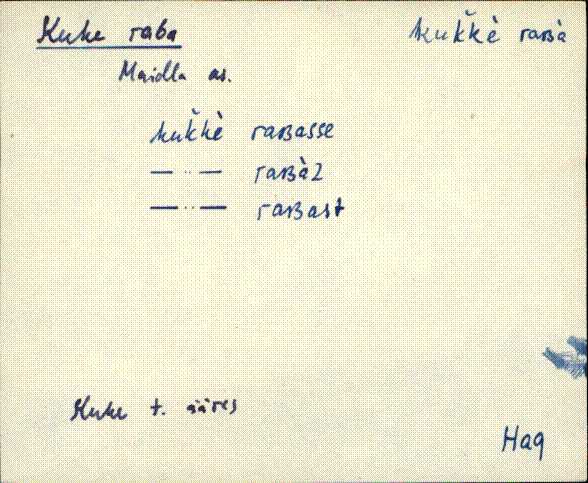 Kuke raba kuk̆kè raʙà
Maidla as.
kuk̆kè raʙasse
— ·· — raʙàl
— ·· — raʙast
Kuke t. ääres
Hag